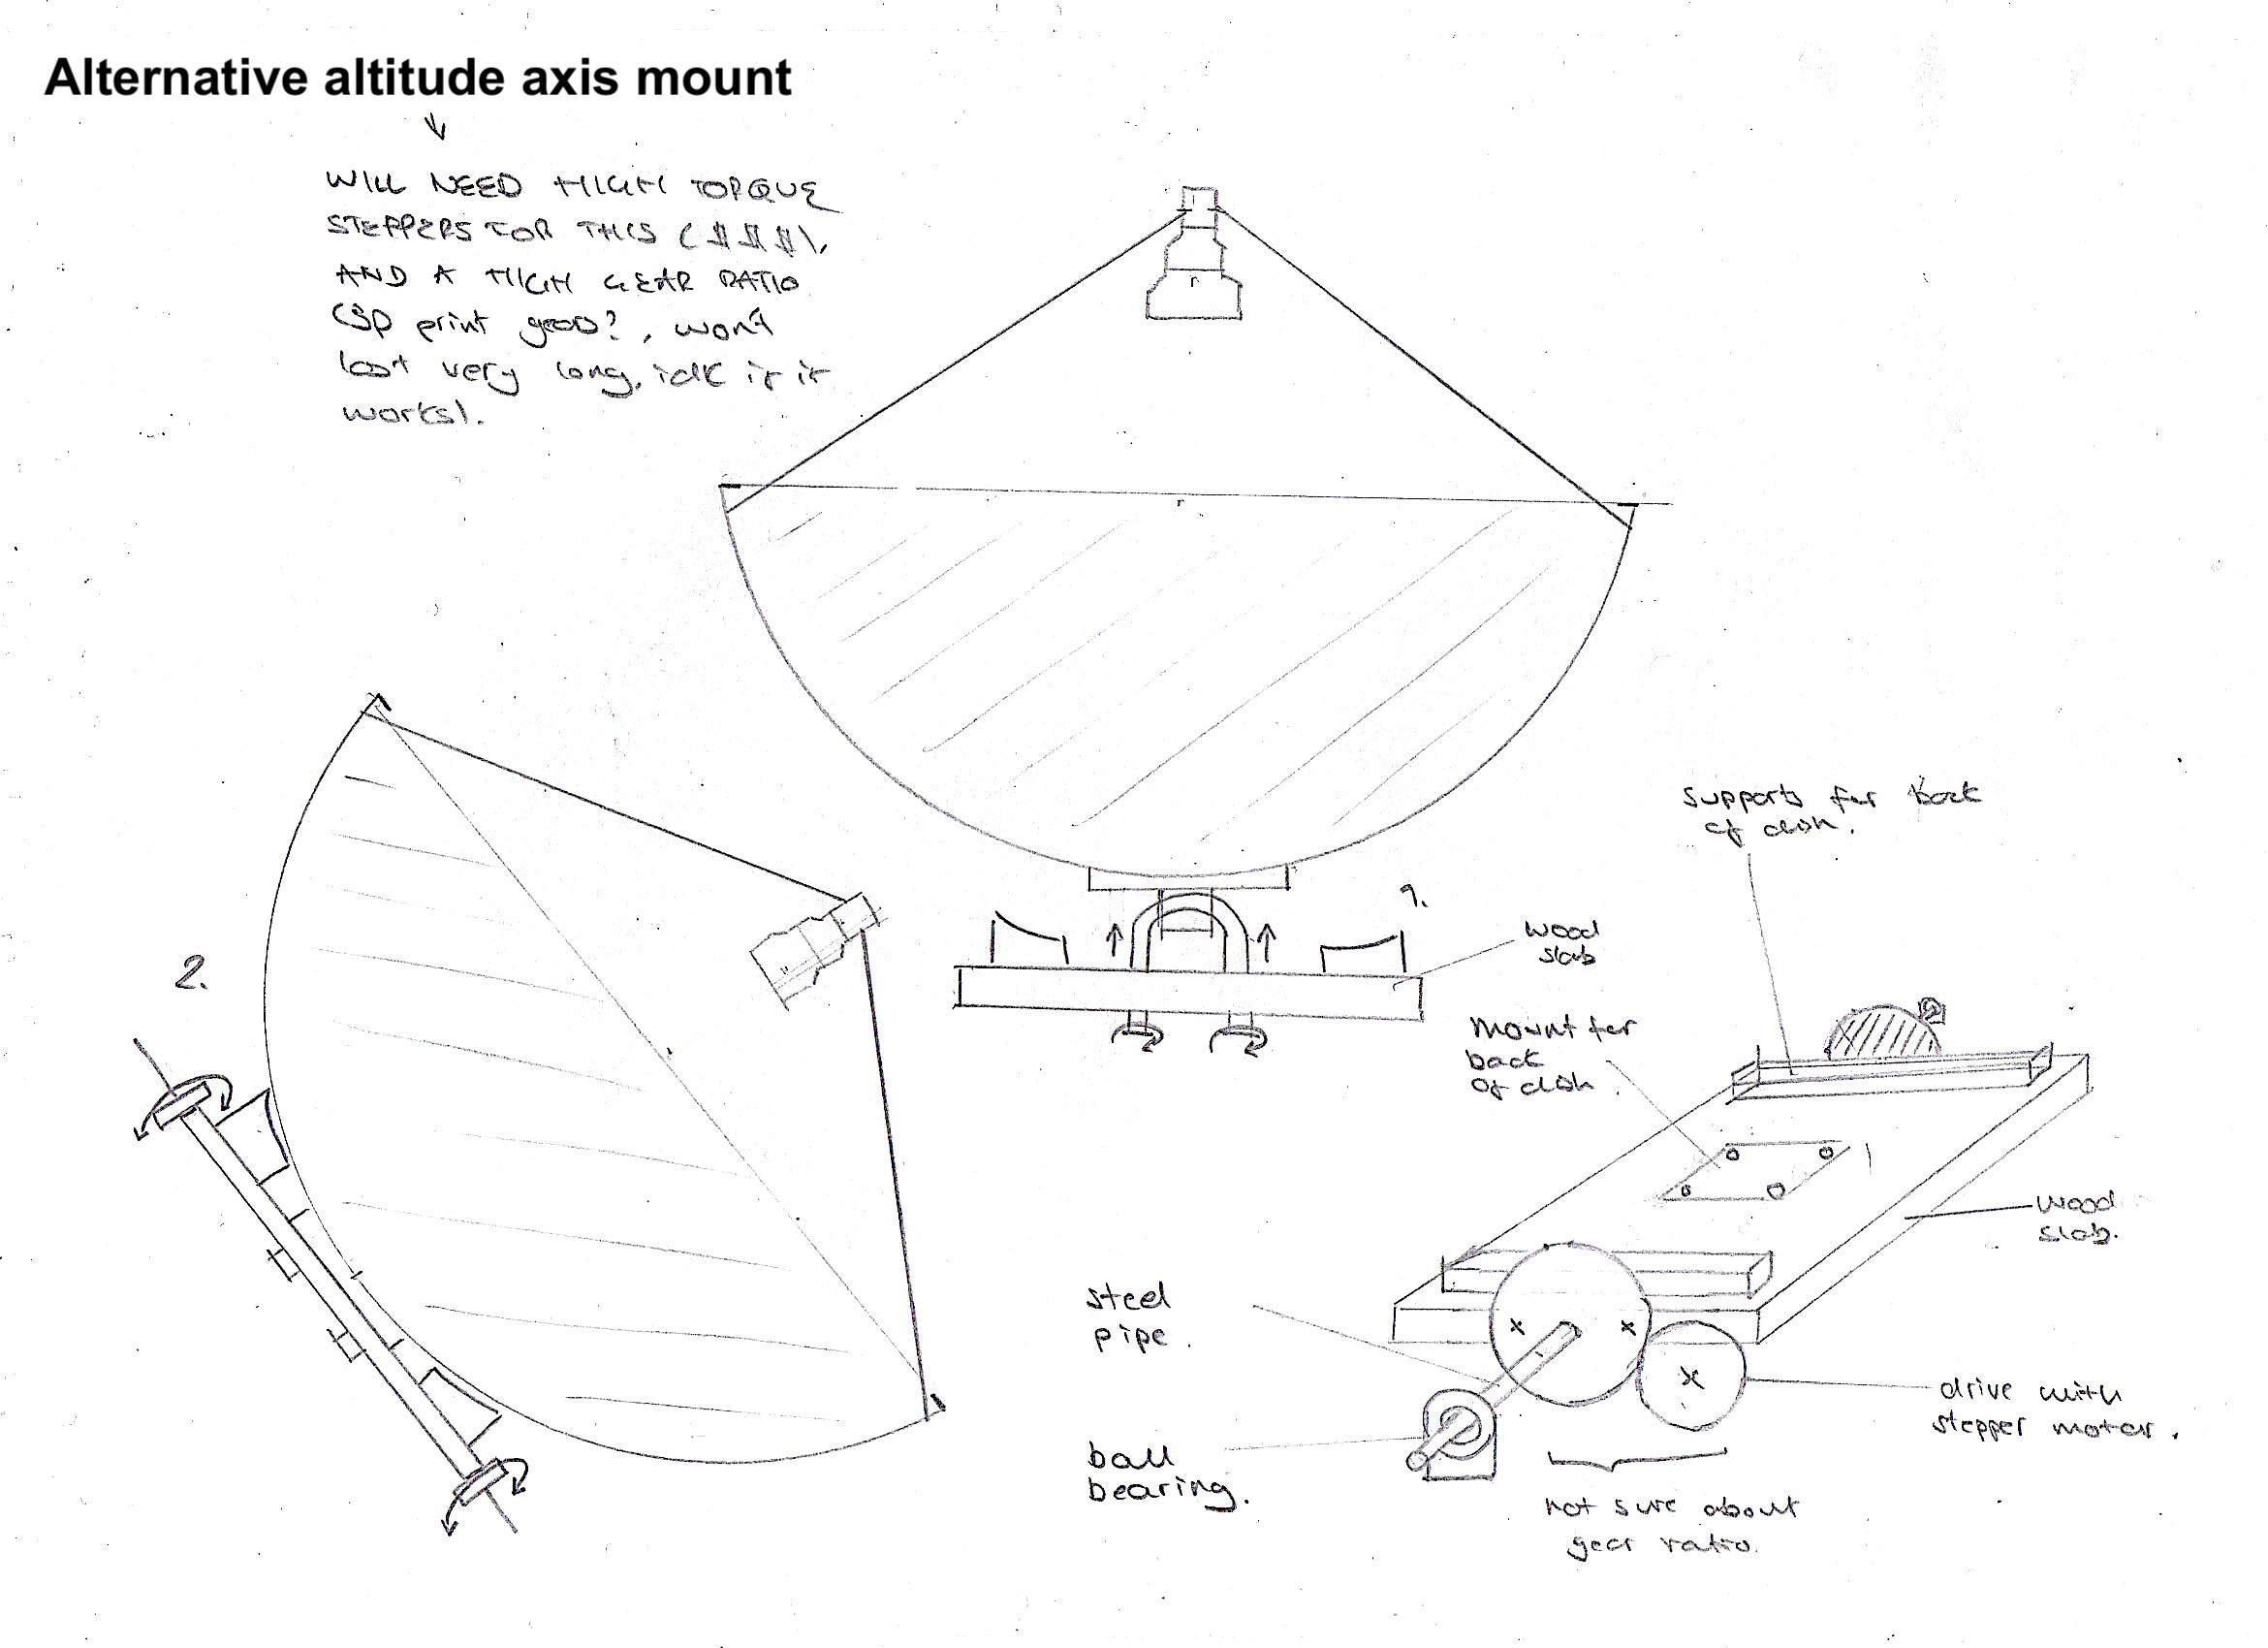 Alternative altitude axis mount
WILL NEED HIGH TORQUE
STEPPERS FOR THIS ($$$),
AND A HIGH GEAR RATIO
(3D print good?, won't
last very long, idk if it
works).
r
r
supports for back
of dish.
1.
wood
slab
2.
mount for
back
of dish.
wood
slab.
steel
pipe.
drive with
stepper motor.
ball
bearing.
not sure about
gear ratio.